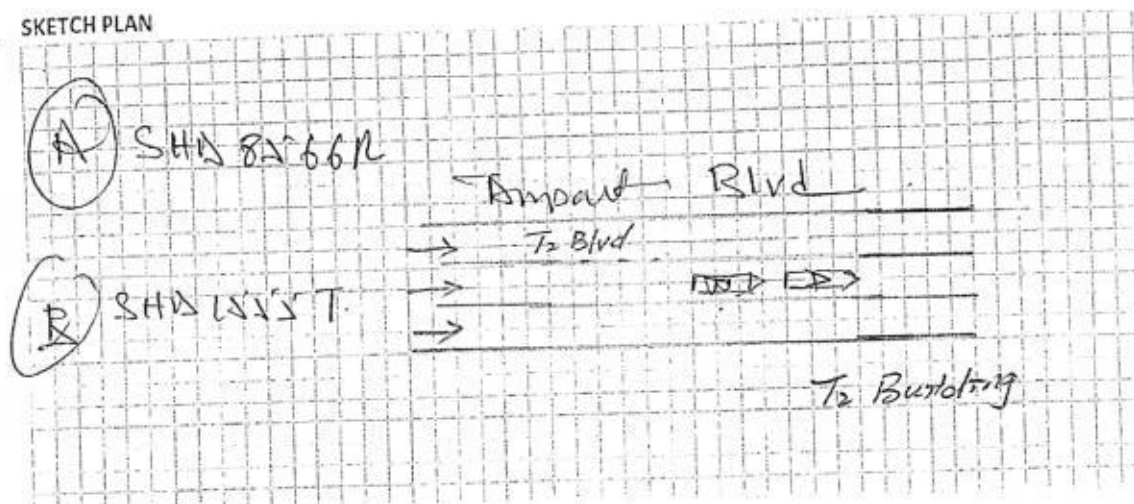 SKETCH PLAN
A SHD 8566R
Airport Blvd
T2 Blvd
B SHD 1555 T
T2 Building